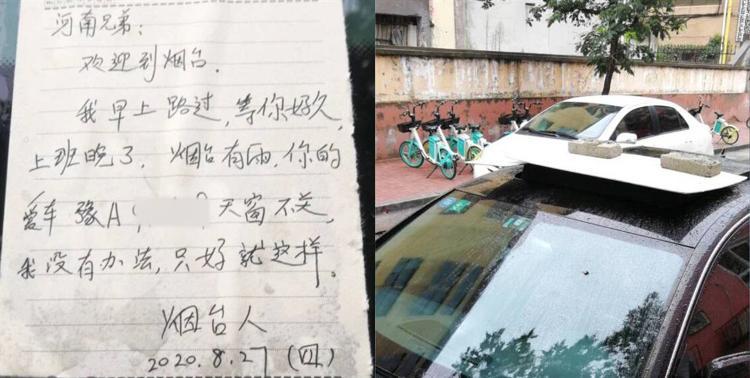 河南兄弟:
欢迎到烟台.
我早上路过,等你好久,
上班晚了.烟台有雨,你的
爱车豫A 天窗不关,
我没有办法,只好就这样。
烟台人
2020.8.27(四)